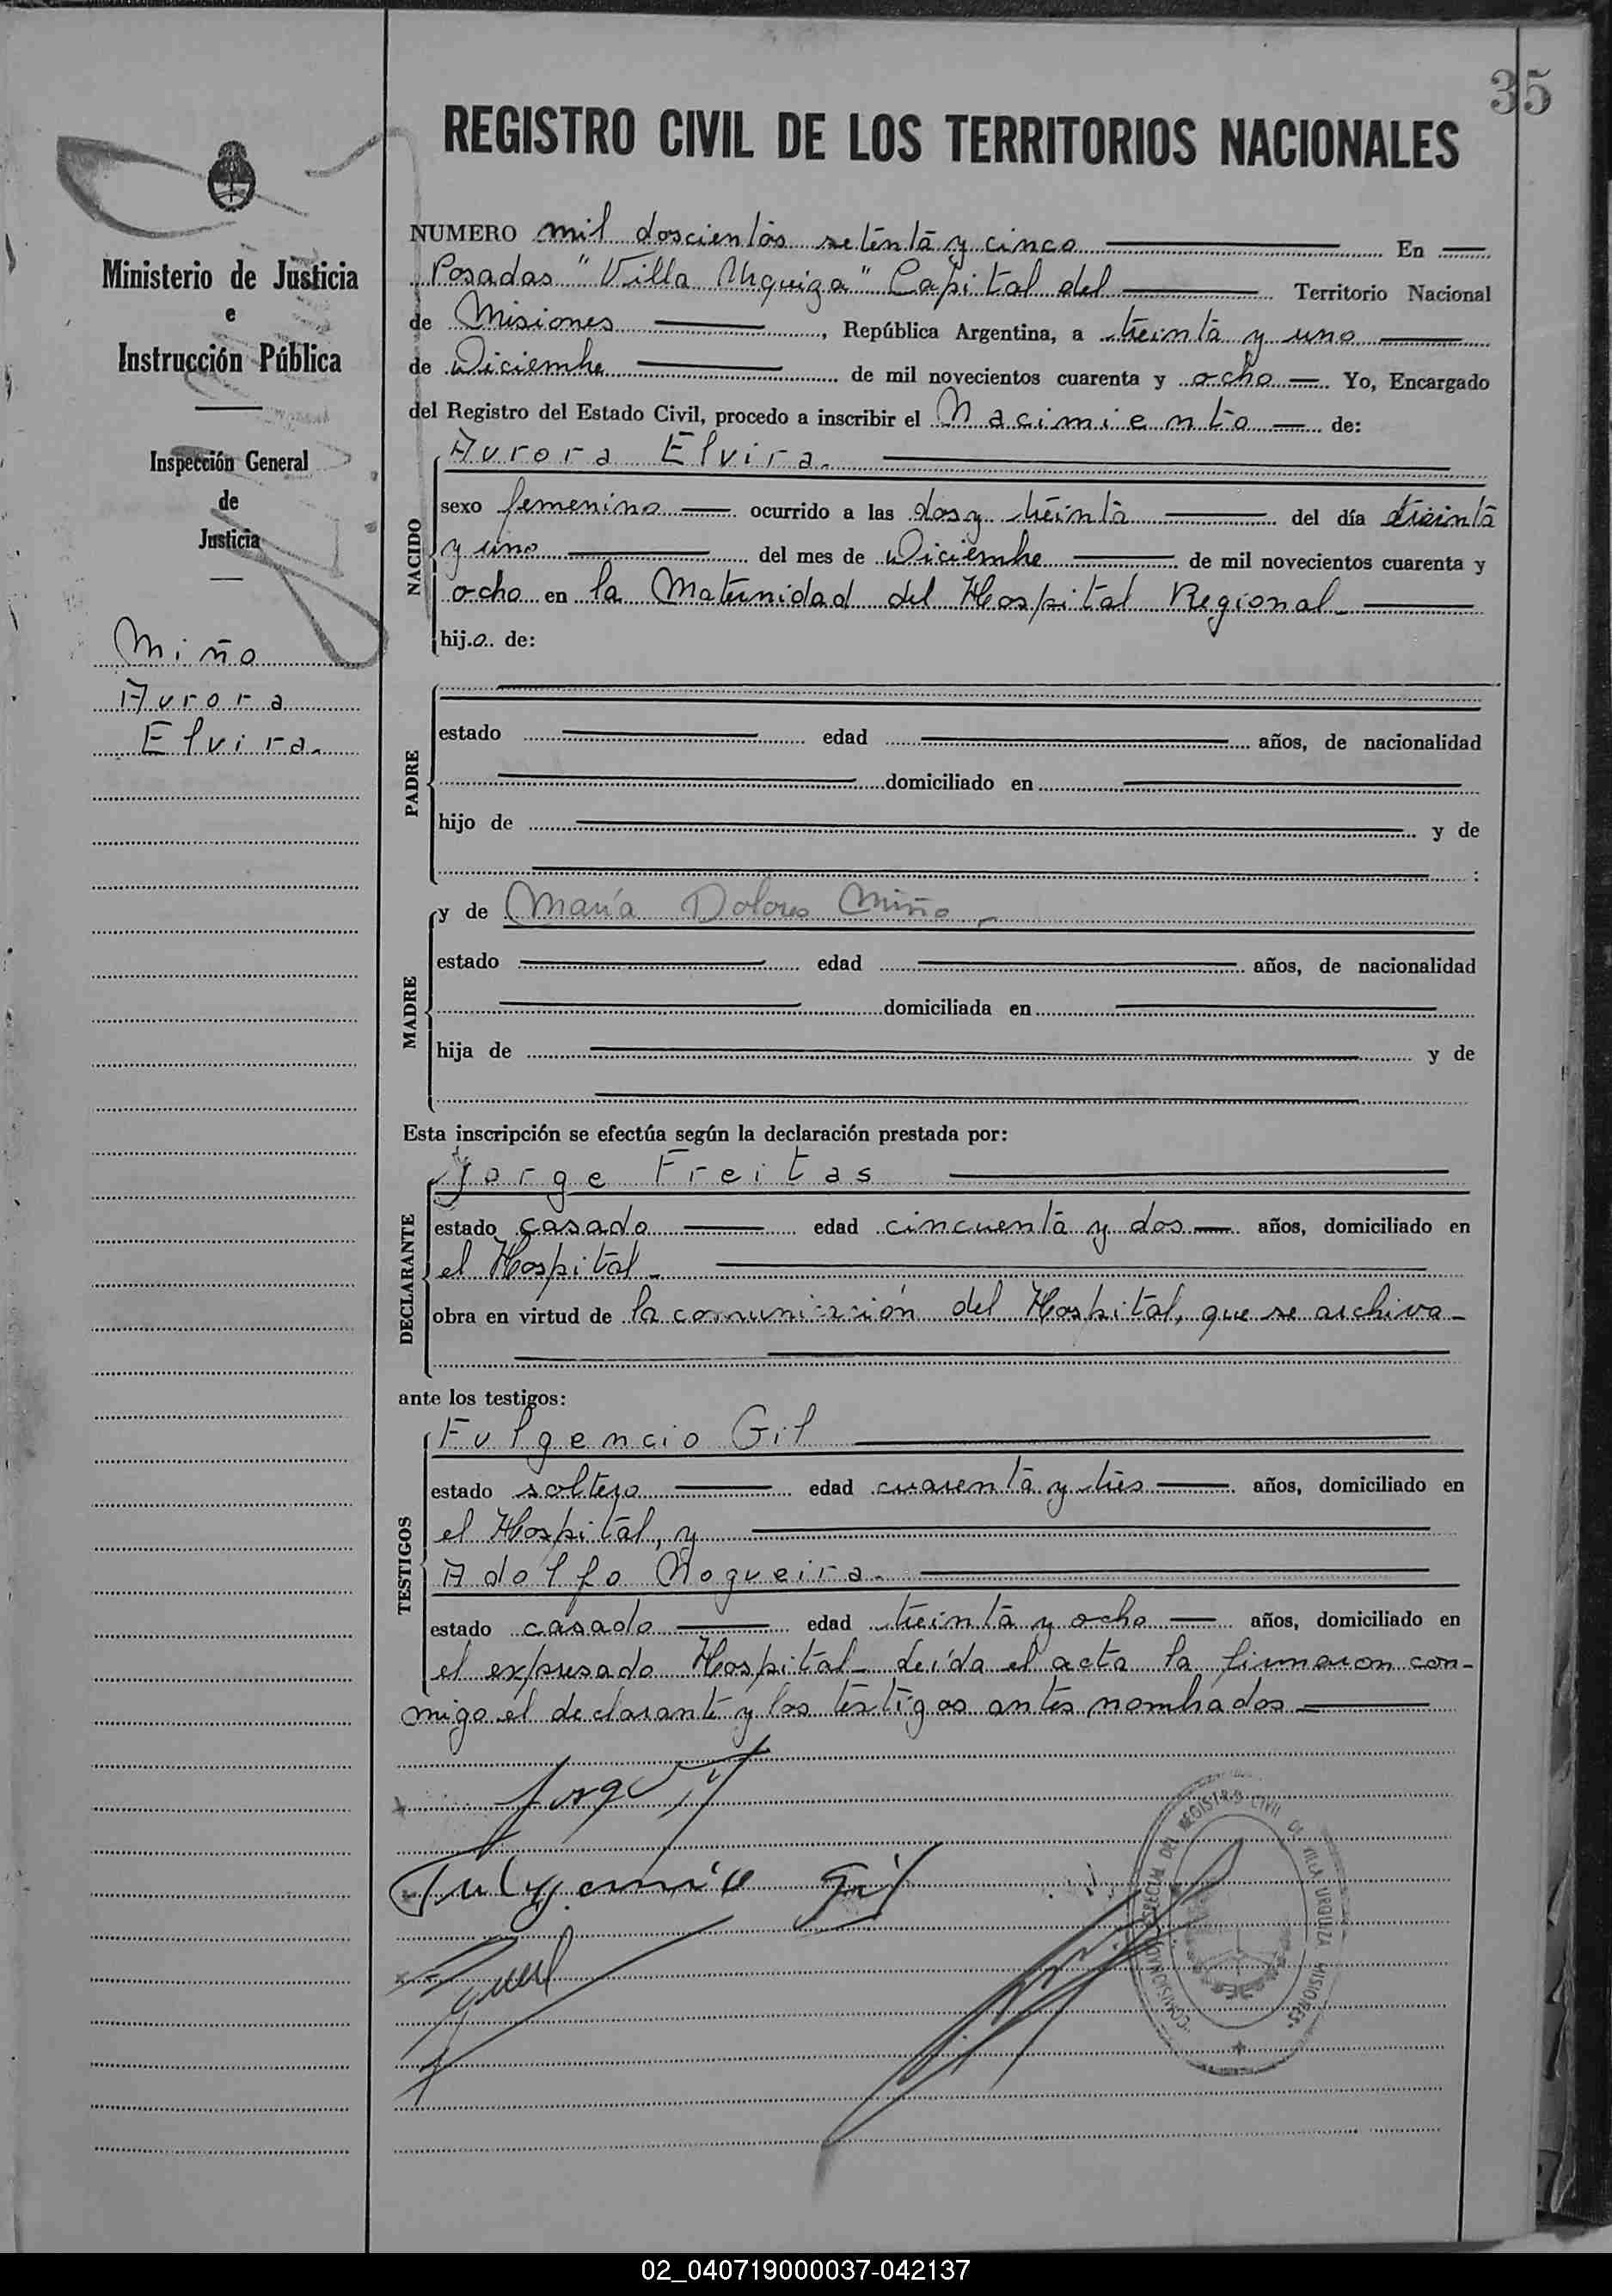 35
REGISTRO CIVIL DE LOS TERRITORIOS NACIONALES
Ministerio de Justicia
e
Instrucción Pública
Inspección General
de
Justicia
Miño
Aurora
Elvira.
NUMERO mil doscientos setenta y cinco En
Posadas "Villa Urquiza" Capital del Territorio Nacional
de Misiones, República Argentina, a treinta y uno
de Diciembre de mil novecientos cuarenta y ocho Yo, Encargado
del Registro del Estado Civil, procedo a inscribir el Nacimiento de:
Aurora Elvira.
NACIDO
sexo femenino ocurrido a las dos y treinta del día treinta
y uno del mes de Diciembre de mil novecientos cuarenta y
ocho en la Maternidad del Hospital Regional
hija de:
PADRE
estado edad años, de nacionalidad
domiciliado en
hijo de y de
:
MADRE
y de María Dolores Miño
estado edad años, de nacionalidad
domiciliada en
hija de y de
Esta inscripción se efectúa según la declaración prestada por:
DECLARANTE
Jorge Freitas
estado casado edad cincuenta y dos años, domiciliado en
el Hospital
obra en virtud de la comunicación del Hospital, que se archiva
ante los testigos:
TESTIGOS
Fulgencio Gil
estado soltero edad cuarenta y tres años, domiciliado en
el Hospital, y
Adolfo Nogueira.
estado casado edad treinta y ocho años, domiciliado en
el expresado Hospital Leída el acta la firmaron con-
migo el declarante y los testigos antes nombrados
Fulgencio Gil
COMISIONADO ESPECIAL DEL REGISTRO CIVIL DE VILLA URQUIZA MISIONES
02_040719000037-042137